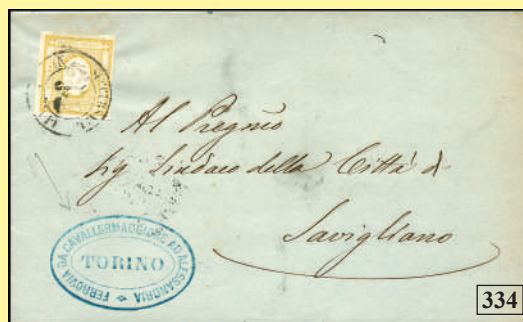 Al Pregmo
Sig Sindaco della Città di
Savigliano
FERROVIA DA CAVALLERMAGGIORE AD ALESSANDRIA
TORINO
334